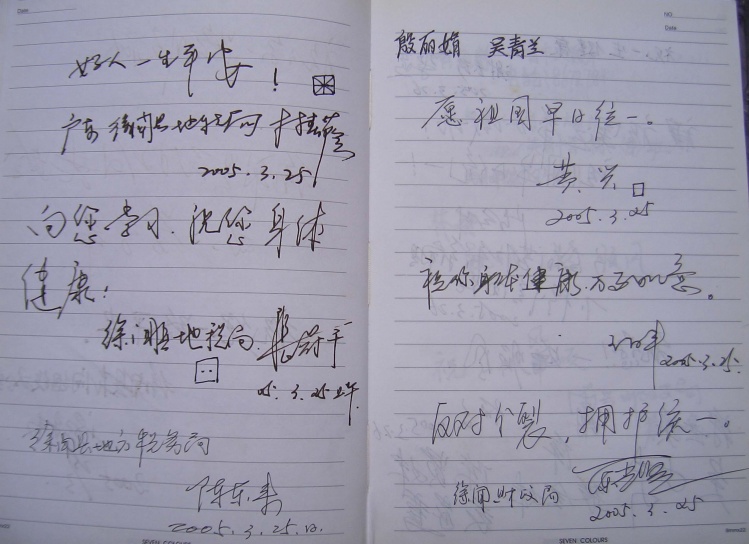 Date
好人一生平安!
广东徐闻县地税局
2005.3.25
向您学习.祝您身体
健康!
徐闻县地税局
05.3.25上午
徐闻县地方税务局
陈东来
2005.3.25.
SEVEN COLOURS
NO.
Date
殷丽娟 吴青兰
愿祖国早日统一。
黄兴
2005.3.25
祝你身体健康,万事如意。
2005.3.25.
反对分裂,拥护统一。
徐闻财政局
2005.3.25
SEVEN COLOURS